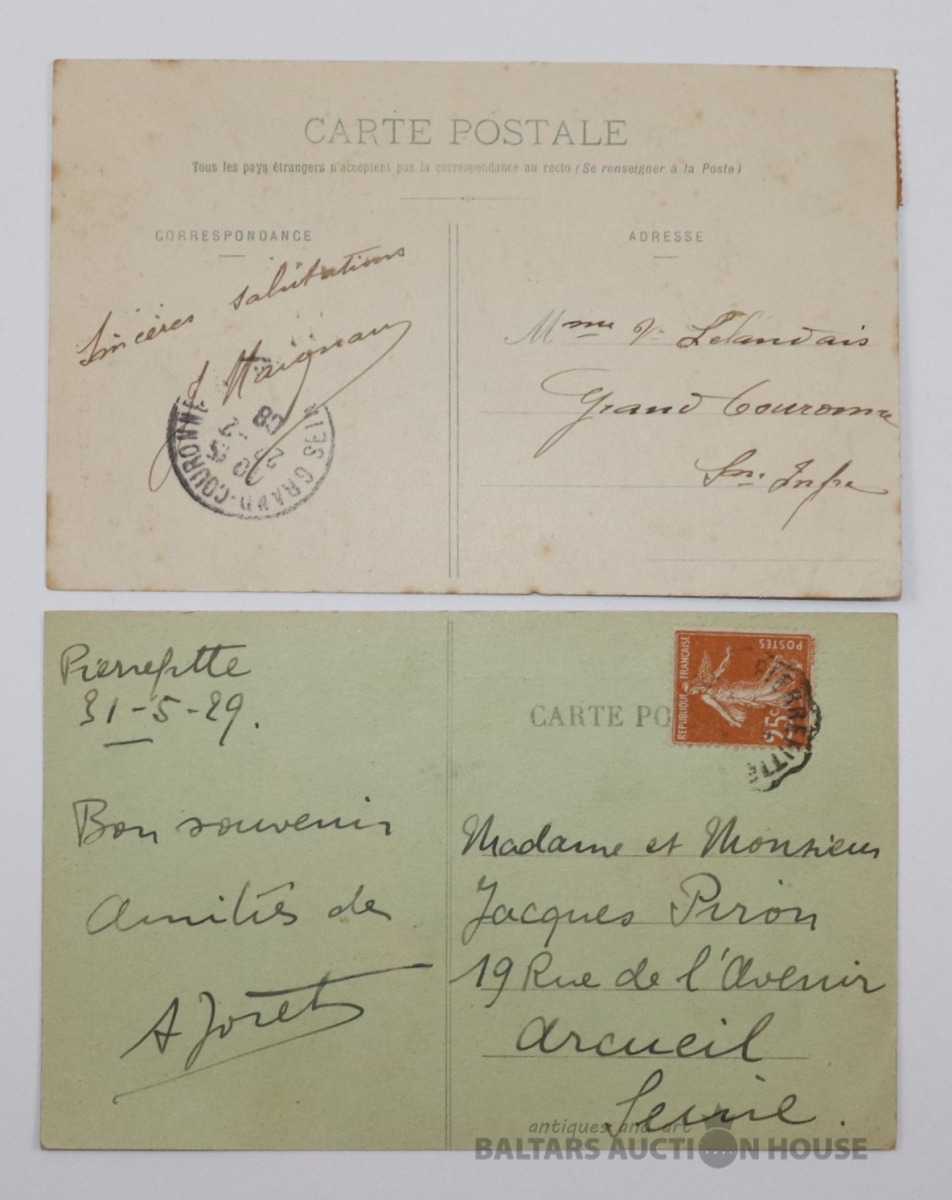 CARTE POSTALE
Tous les pays étrangers n'acceptent pas la correspondance au recto (Se renseigner à la Poste)
CORRESPONDANCE
Sincères salutations
Maignan
GRAND-COURONNE
ADRESSE
Mme Ve Lelandais
Grand Couronne
Sne Infre
Pierrefitte
31-5-29.
Bon souvenir
Amitiés de
A Joret
CARTE PO
REPUBLIQUE FRANÇAISE
POSTES
25c
PIERREFITTE
Madame et Monsieur
Jacques Piron
19 Rue de l'Avenir
Arcueil
Seine.
antiques and art
BALTARS AUCTION HOUSE